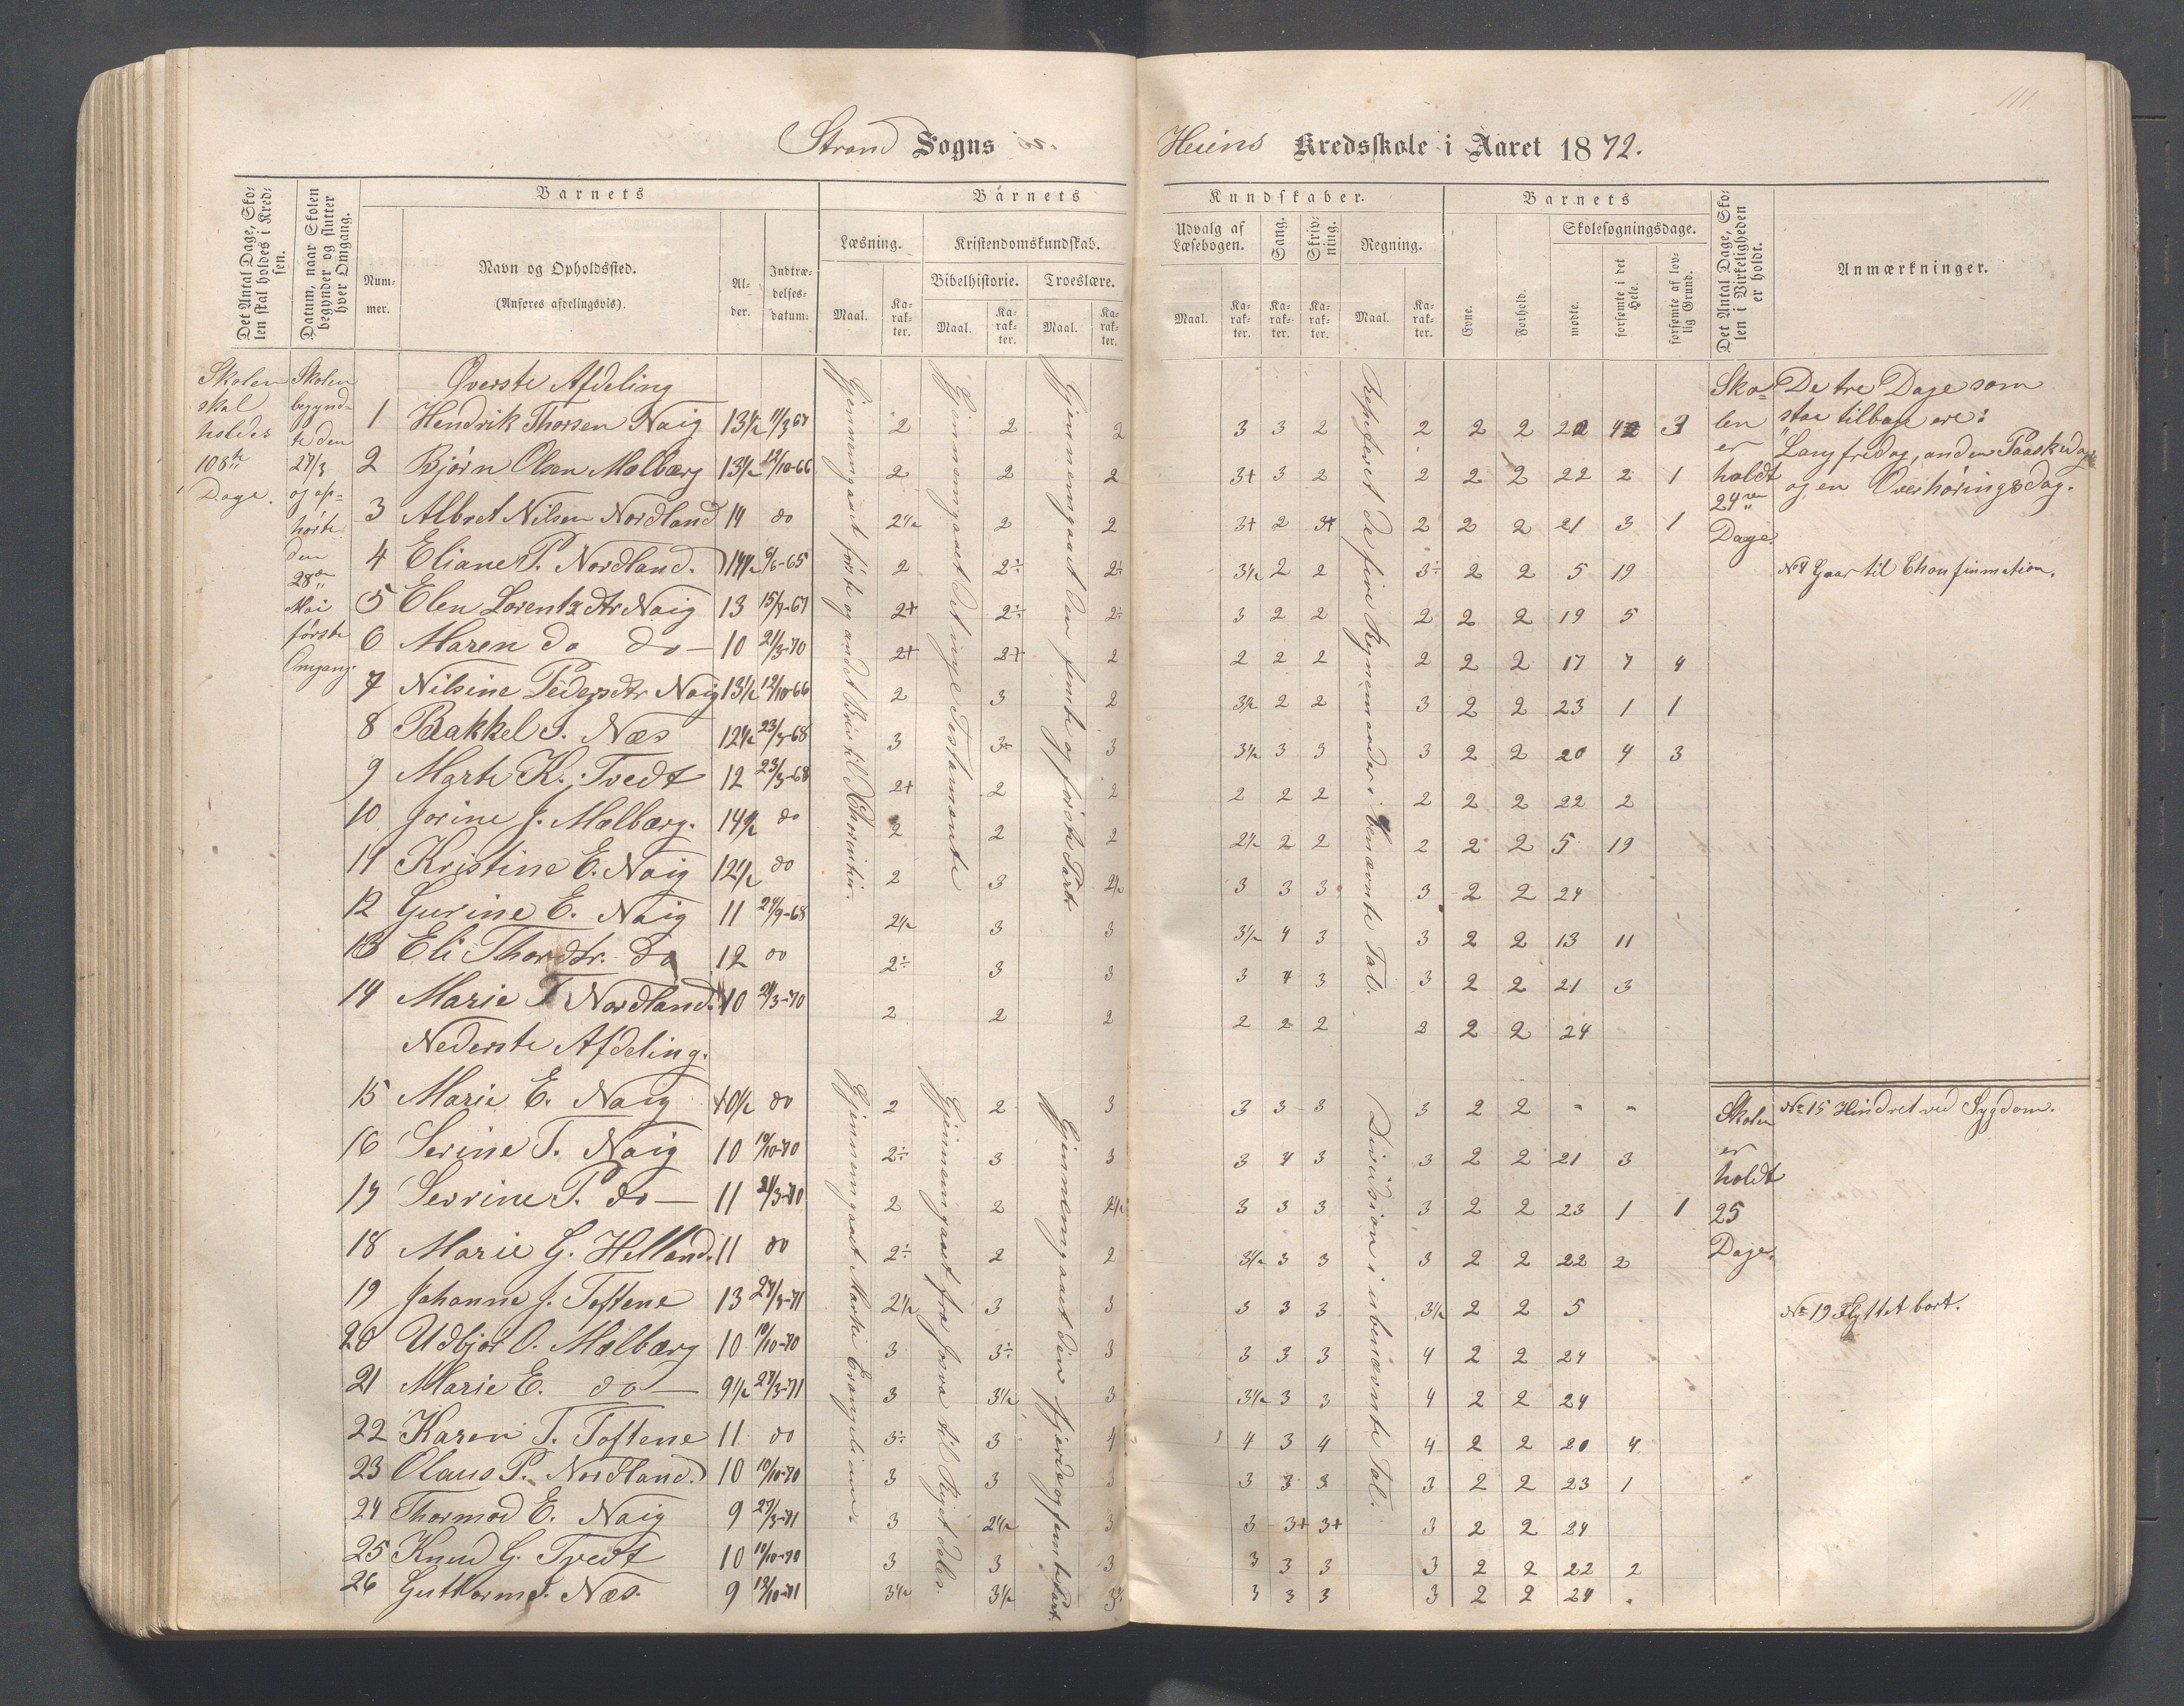 111.
Strand Sogns Heiens Kredsskole i Aaret 1872.
Det Antal Dage, Skolen skal holdes i Kredsen.
Datum, naar Skolen begynder og slutter hver Omgang.
Barnets
Nummer.
Navn og Opholdssted.
(Anføres afdelingsvis).
Alder.
Indtrædelsesdatum.
Barnets Kundskaber.
Læsning.
Kristendomskundskab.
Bibelhistorie.
Troeslære.
Udvalg af Læsebogen.
Sang.
Skrivning.
Regning.
Maal.
Karakter.
Barnets
Evne.
Forhold.
Skolesøgningsdage.
mødte.
forsømte i det Hele.
forsømte af lovlig Grund.
Det Antal Dage, Skolen i Virkeligheden er holdt.
Anmærkninger.
Skolen
skal
holdes
108
Dage.
Skolen
begynd-
te den
27/3
og op-
hørte
den
28de
Mai
første
Omgang.
Øverste Afdeling
1 Hendrik Thorsen Naig 13½ 11/3 67 2 2 2 3 3 2 2 2 2
2 Bjørn Olsen Molbærg 13½ 12/10-66 2 2 2 3+ 3 2 2 2 2 22 2 1
3 Albret Nilsen Nordland 14 do 2½ 2 2 3+ 2 3+ 2 2 2 21 3 1
4 Eliane P. Nordland. 14½ 6/6-65 2 2÷ 2÷ 3½ 2 2 3÷ 2 2 5 19
5 Elen Lorentzdtr Naig 13 15/9-67 2+ 2÷ 2÷ 3 2 2 2 2 2 19 5
6 Maren do do 10 21/3-70 2+ 2+ 2 2 2 2 2 2 2 17 7 4
7 Nilsine Pedersdtr Naig 13½ 12/10-66 2 3 2 3½ 2 2 3 2 2 23 1 1
8 Rakkel S. Næs 12½ 23/3-68 3 3÷ 3 3½ 3 3 3 2 2 20 4 3
9 Marte K. Tvedt 12 23/3-68 2+ 2 2 2 2 2 2 2 2 22 2
10 Jorine J. Molbærg. 14½ do 2 2 2 2½ 2 2 2 2 2 5 19
11 Kristine E. Naig 12½ do 2 3 2½ 3 3 3 3 2 2 24
12 Gurine E. Naig 11 24/9-68 2½ 3 3 3½ 4 3 3 2 2 13 11
13 Eli Thordtr. do 12 do 2÷ 3 3 3 4 3 3 2 2 21 3
14 Marie T Nordland. 10 21/3-70 2 2 2 2 2 2 2 2 2 24
Nederste Afdeling.
15 Marie E. Naig 10½ do 2 2 3 3 3 3 3 2 2 - -
16 Serine T. Naig 10 10/10-70 2÷ 3 3 3 4 3 3 2 2 21 3
17 Sevrine P. do 11 21/3-70 2 2 2½ 3 3 3 3 2 2 23 1 1
18 Marie G. Helland. 11 do 2÷ 2 2 3½ 3 3 3 2 2 22 2
19 Johanne J. Toftene 13 27/3-71 2½ 3 3 3 3 3 3½ 2 2 5
20 Udbjør O. Molbærg 10 10/10-70 3 3÷ 3 3 3 3 4 2 2 24
21 Marie E. do 9½ 27/3-71 3 3½ 3 3½ 3 3 4 2 2 24
22 Karen T. Toftene 11 do 3÷ 3 4 4 3 4 4 2 2 20 4
23 Olaus P. Nordland. 10 10/10-70 3 3 3 3 3 3 3 2 2 23 1
24 Thormod E. Naig 9 27/3-71 3 2½ 3 3 3+ 3+ 3 2 2 24
25 Knud G. Tvedt 10 10/10-70 3 3 3 3 3 3 3 2 2 22 2
26 Guthorm S. Næs. 9 12/10-71 3½ 3½ 3½ 3 3 3 3 2 2 24
Gjennemgaaet første og andet Brev til Chorinthier.
Gjennemgaaet det nye Testamente
Gjennemgaaet den femte og første Part
Repiteret de fire Regnemaader i benævnte Tal.
Gjennemgaaet Marki Evangelium.
Gjennemgaaet fra Josva til Riget deles.
Gjennemgaaet den fjerde og femte Part.
Division i ubenævnte Tal.
Sko-
len
er
holdt
24
Dage.
De tre Dage som
staa tilbage ere:
Langfredag, anden Paaskedag
og en Overhøringsdag.
No 4 Gaar til Chonfirmation.
Skolen
er
holdt
25
Dage.
No 15 Hindret ved Sygdom.
No 19 Flyttet bort.